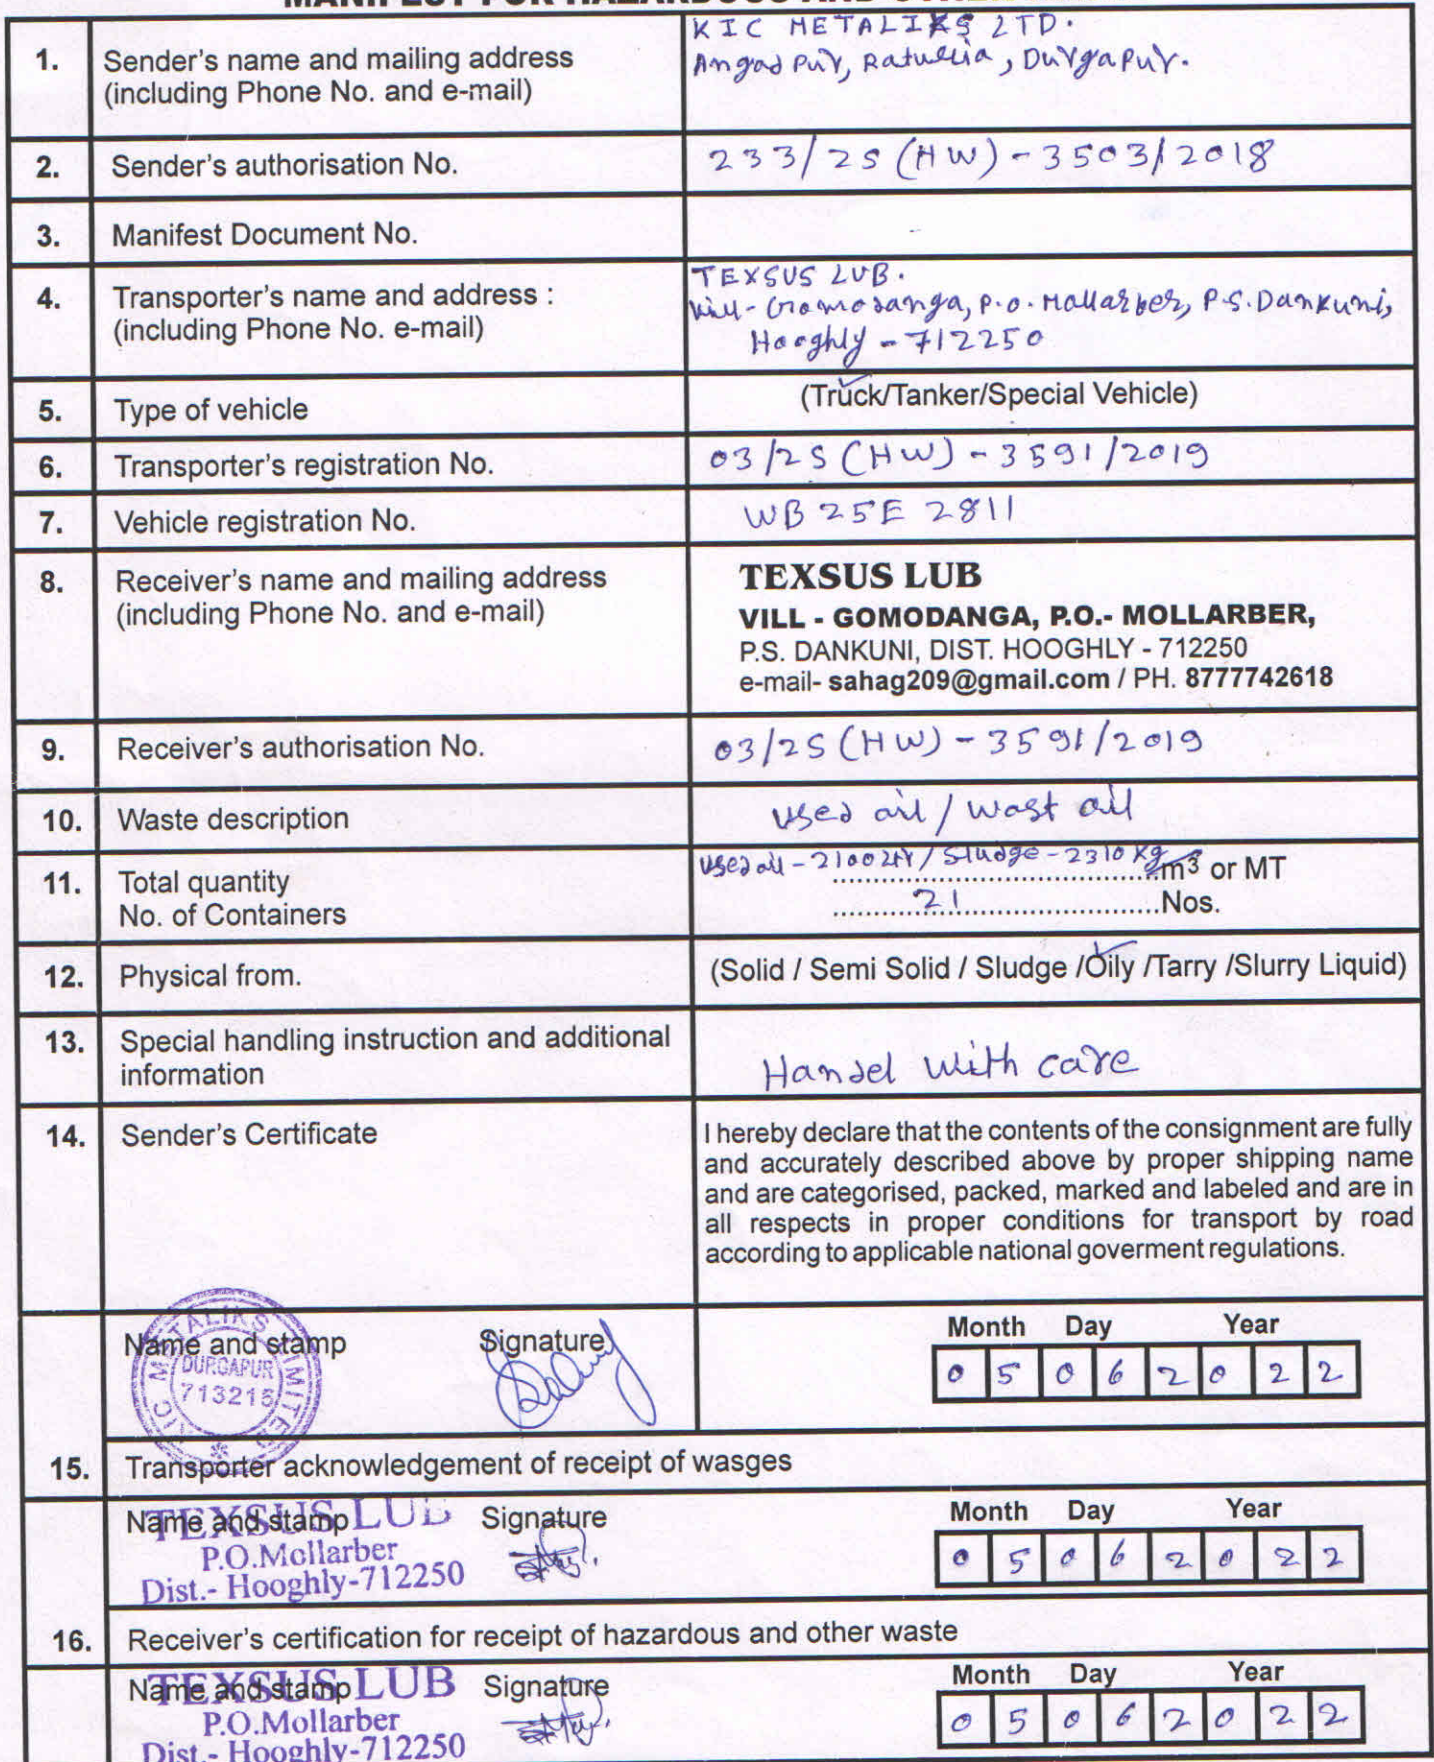 1. Sender's name and mailing address
(including Phone No. and e-mail)
KIC METALIKS LTD.
Angadpur, Raturia, Durgapur.
2. Sender's authorisation No. 233/2S (HW) - 3503/2018
3. Manifest Document No.
4. Transporter's name and address :
(including Phone No. e-mail)
TEXSUS LUB.
Vill- Gromodanga, P.O. Mollarber, P.S. Dankuni,
Hooghly - 712250
5. Type of vehicle (Truck/Tanker/Special Vehicle)
6. Transporter's registration No. 03/2S (HW) - 3591/2019
7. Vehicle registration No. WB 25E 2811
8. Receiver's name and mailing address
(including Phone No. and e-mail)
TEXSUS LUB
VILL - GOMODANGA, P.O.- MOLLARBER,
P.S. DANKUNI, DIST. HOOGHLY - 712250
e-mail- sahag209@gmail.com / PH. 8777742618
9. Receiver's authorisation No. 03/2S (HW) - 3591/2019
10. Waste description used oil / wast oil
11. Total quantity used oil - 2100 Ltr / Sludge - 2310 kg m³ or MT
No. of Containers 21 Nos.
12. Physical from. (Solid / Semi Solid / Sludge /Oily /Tarry /Slurry Liquid)
13. Special handling instruction and additional
information
Handel with care
14. Sender's Certificate
I hereby declare that the contents of the consignment are fully
and accurately described above by proper shipping name
and are categorised, packed, marked and labeled and are in
all respects in proper conditions for transport by road
according to applicable national goverment regulations.
Name and stamp Signature Month Day Year
KIC METALIKS LIMITED
DURGAPUR
713215
0 5 0 6 2 0 2 2
15. Transporter acknowledgement of receipt of wasges
Name and stamp Signature Month Day Year
TEXSUS LUB
P.O.Mollarber
Dist.- Hooghly-712250
0 5 0 6 2 0 2 2
16. Receiver's certification for receipt of hazardous and other waste
Name and stamp Signature Month Day Year
TEXSUS LUB
P.O.Mollarber
Dist.- Hooghly-712250
0 5 0 6 2 0 2 2